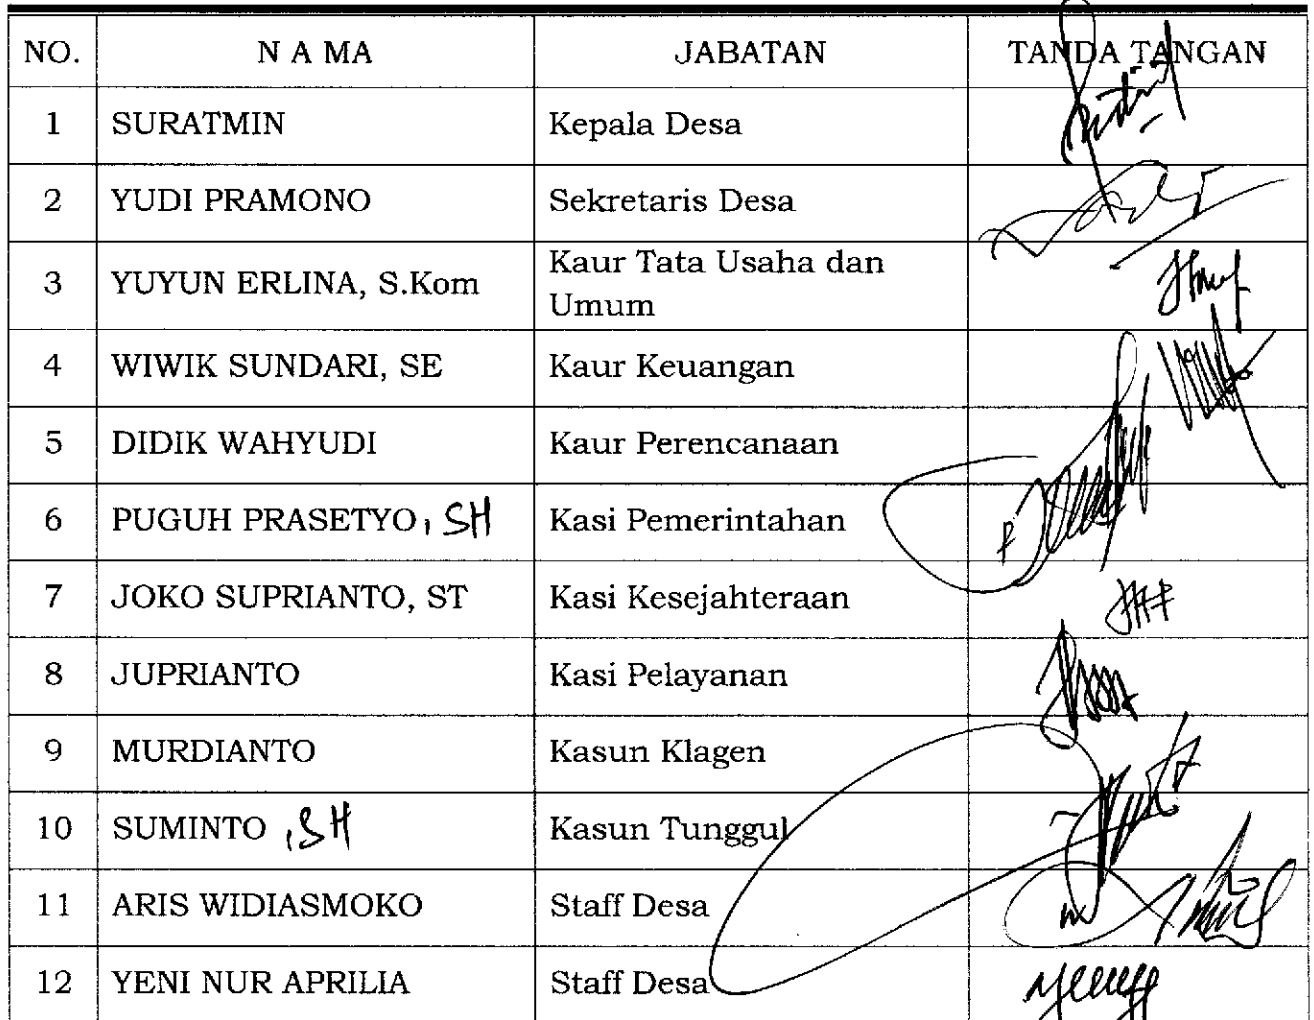 NO. N A MA JABATAN TANDA TANGAN
1 SURATMIN Kepala Desa
2 YUDI PRAMONO Sekretaris Desa
3 YUYUN ERLINA, S.Kom Kaur Tata Usaha dan
Umum
4 WIWIK SUNDARI, SE Kaur Keuangan
5 DIDIK WAHYUDI Kaur Perencanaan
6 PUGUH PRASETYO, SH Kasi Pemerintahan
7 JOKO SUPRIANTO, ST Kasi Kesejahteraan
8 JUPRIANTO Kasi Pelayanan
9 MURDIANTO Kasun Klagen
10 SUMINTO ,SH Kasun Tunggul
11 ARIS WIDIASMOKO Staff Desa
12 YENI NUR APRILIA Staff Desa